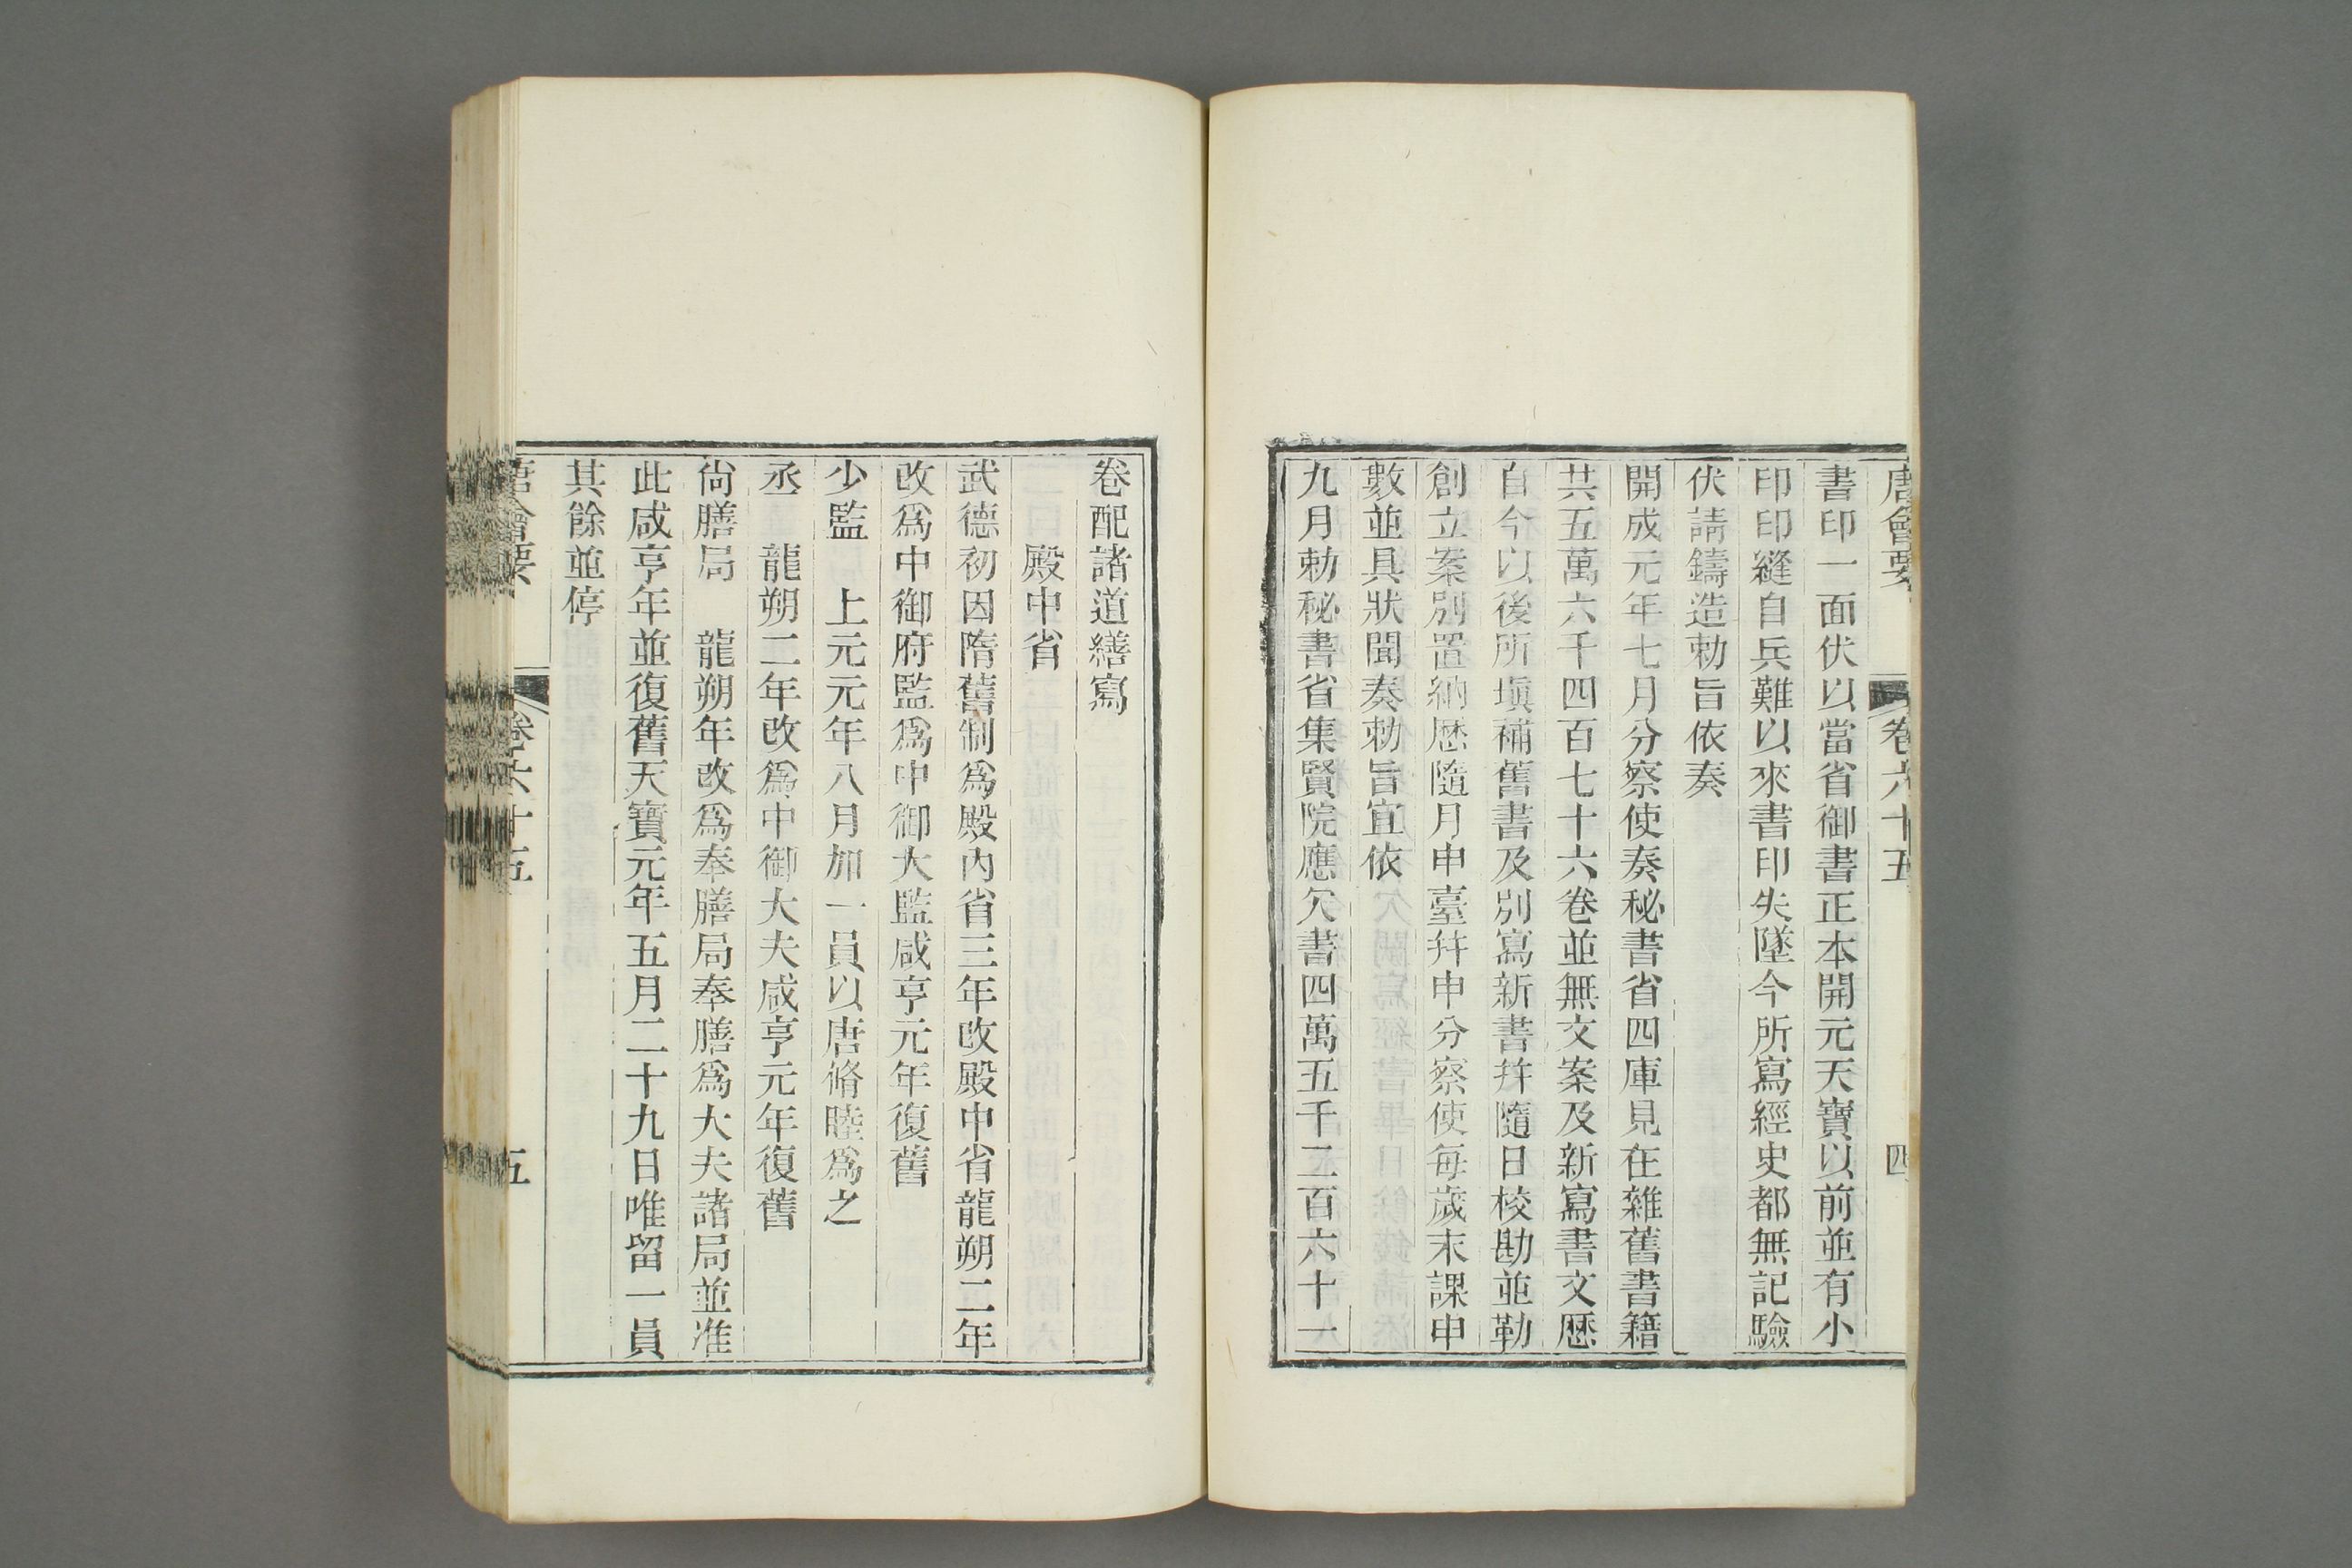 唐會要 卷六十五 四
書印一面伏以當省御書正本開元天寶以前並有小
印印縫自兵難以來書印失墜今所寫經史都無記驗
伏請鑄造勅旨依奏
開成元年七月分察使奏秘書省四庫見在雜舊書籍
共五萬六千四百七十六卷並無文案及新寫書文歷
自今以後所塡補舊書及別寫新書幷隨日校勘並勒
創立案別置納歷隨月申臺幷申分察使每歲末課申
數並具狀聞奏勅旨宜依
九月勅秘書省集賢院應欠書四萬五千二百六十一
卷配諸道繕寫
殿中省
武德初因隋舊制爲殿內省三年改殿中省龍朔二年
改爲中御府監爲中御大監咸亨元年復舊
少監 上元元年八月加一員以唐脩睦爲之
丞 龍朔二年改爲中御大夫咸亨元年復舊
尙膳局 龍朔年改爲奉膳局奉膳爲大夫諸局並准
此咸亨年並復舊天寶元年五月二十九日唯留一員
其餘並停
唐會要 卷六十五 五